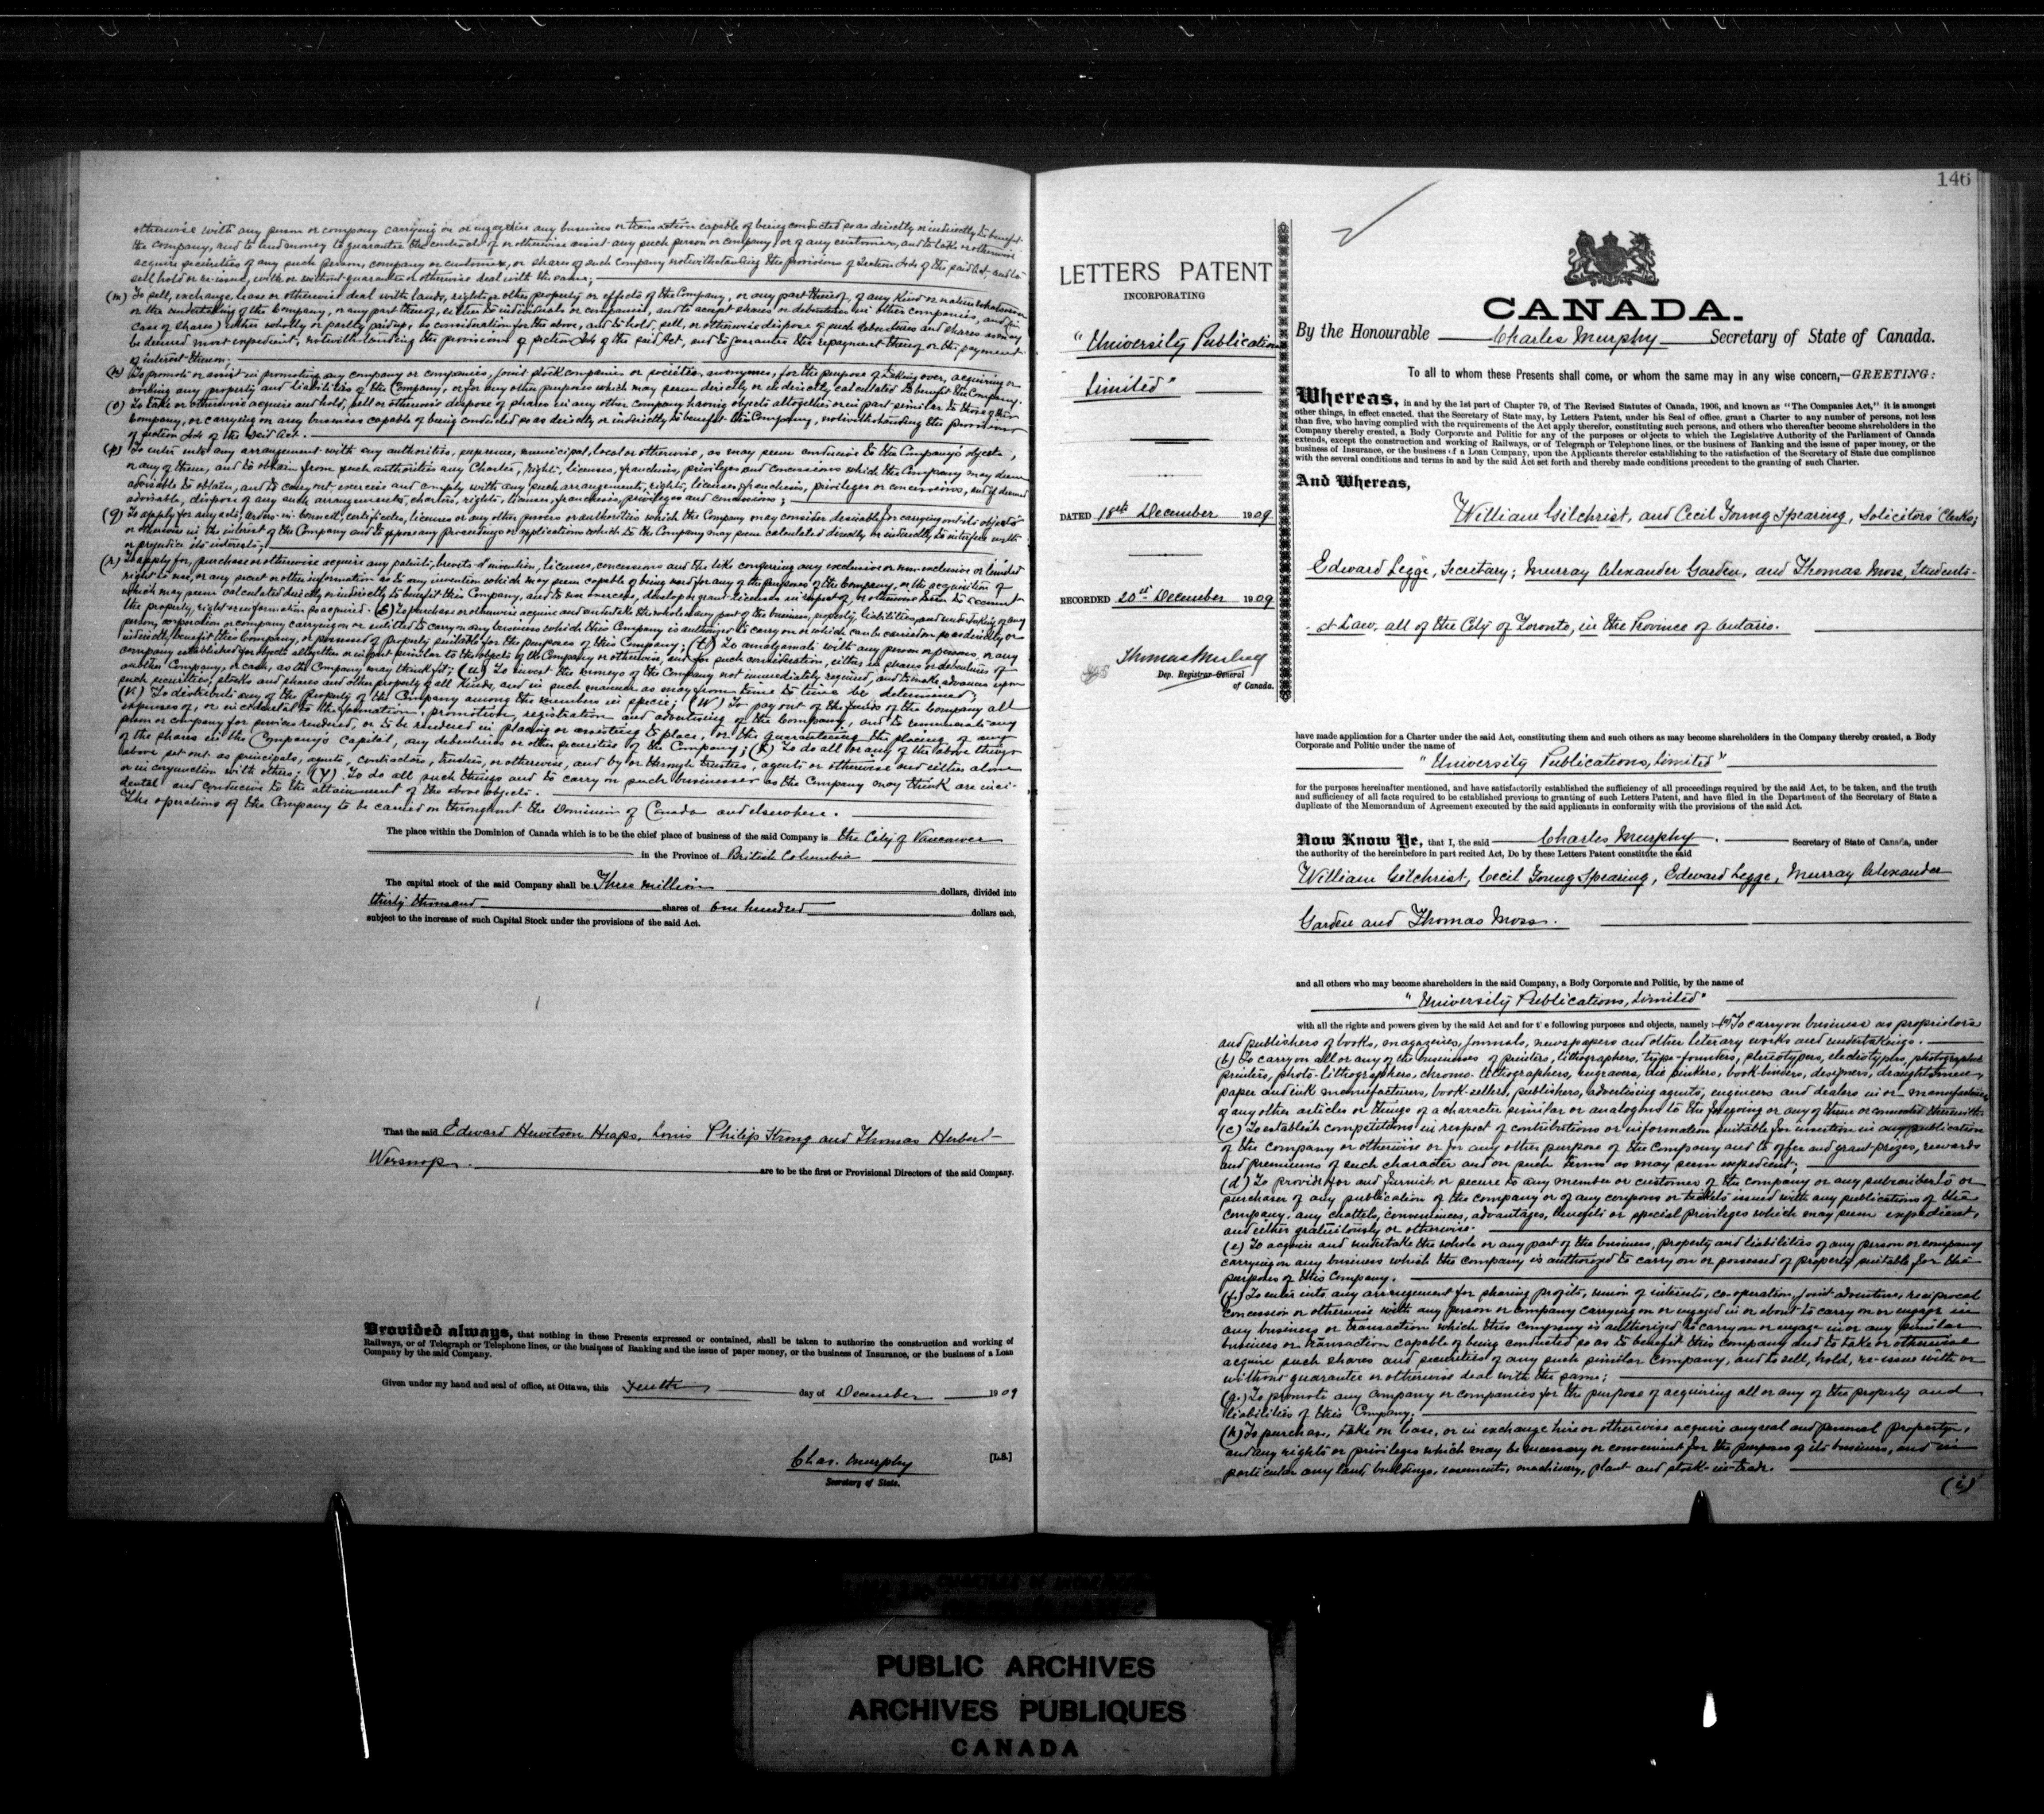 otherwise with any person or company carrying on or engaged in any business or transaction capable of being conducted so as directly or indirectly to benefit
the Company, and to lend money to guarantee the contracts of or otherwise assist any such person or company, or of any customers, and to take or otherwise
acquire securities of any such person, company or customer, or shares of such company notwithstanding the provisions of section 44 of the said Act, and to
sell hold or re-issue, with or without guarantee or otherwise deal with the same;
(m) To sell, exchange, lease or otherwise deal with lands, rights or other property or effects of the Company, or any part thereof, of any kind or nature whatsoever
or the undertaking of the Company, or any part thereof, either to individuals or companies, and to accept shares or debentures in other companies, and (in
case of shares) either wholly or partly paid up, as consideration for the above, and to hold, sell, or otherwise dispose of such debentures and shares as may
be deemed most expedient, notwithstanding the provisions of section 44 of the said Act, and to guarantee the repayment thereof or the payment
of interest thereon;
(n) To promote or assist in promoting any company or companies, joint stock companies or societies anonymes, for the purpose of taking over, acquiring or
working any property and liabilities of the Company, or for any other purpose which may seem directly or indirectly calculated to benefit the Company.
(o) To take or otherwise acquire and hold, sell or otherwise dispose of shares in any other Company having objects altogether or in part similar to those of this
Company, or carrying on any business capable of being conducted so as directly or indirectly to benefit this Company, notwithstanding the provisions
of section 44 of the said Act.
(p) To enter into any arrangement with any authorities, supreme, municipal, local or otherwise, as may seem conducive to the Company's objects,
or any of them, and to obtain from such authorities any Charter, rights, licenses, franchises, privileges and concessions which the Company may deem
advisable to obtain, and to carry out, exercise and comply with any such arrangements, rights, licenses, franchises, privileges or concessions, and if deemed
advisable, dispose of any such arrangements, charters, rights, licenses, franchises, privileges and concessions;
(q) To apply for any acts, orders-in-Council, certificates, licenses or any other powers or authorities which the Company may consider desirable for carrying out its objects
or otherwise in the interest of the Company and to oppose any proceedings or applications which to the Company may seem calculated directly or indirectly to interfere with
or prejudice its interests;
(r) To apply for, purchase or otherwise acquire any patents, brevets d'invention, licenses, concessions and the like conferring any exclusive or non-exclusive or limited
right to use, or any secret or other information as to any invention which may seem capable of being used for any of the purposes of the Company, or the acquisition of
which may seem calculated directly or indirectly to benefit this Company, and to use exercise, develop or grant licenses in respect of, or otherwise turn to account
the property, rights or information so acquired. (s) To purchase or otherwise acquire and undertake the whole or any part of the business, property, liabilities, and undertaking of any
person, corporation or company carrying on or entitled to carry on any business which this Company is authorized to carry on or which can be carried on so as directly or
indirectly benefit this Company, or possessed of property suitable for the purposes of this Company; (t) To amalgamate with any person or persons, or any
company established for objects altogether or in part similar to the objects of the Company or otherwise, and for such consideration, either in shares or debentures of
another Company, or cash, as the Company may think fit; (u) To invest the moneys of the Company not immediately required, and to make advances upon
such securities, stocks and shares and other property of all kinds, and in such manner as may from time to time be determined;
(v) To distribute any of the property of the Company among the members in specie; (w) To pay out of the funds of the Company all
expenses of, or incidental to the formation, promotion, registration and advertising of the Company, and to remunerate any
person or company for services rendered, or to be rendered in placing or assisting to place, or the guaranteeing the placing of any
of the shares in the Company's Capital, any debentures or other securities of the Company; (x) To do all or any of the above things
above set out as principals, agents, contractors, trustees, or otherwise, and by or through trustees, agents or otherwise and either alone
or in conjunction with others; (y) To do all such things and to carry on such businesses as the Company may think are inci-
dental and conducive to the attainment of the above objects.
The operations of the Company to be carried on throughout the Dominion of Canada and elsewhere.
The place within the Dominion of Canada which is to be the chief place of business of the said Company is the City of Vancouver
in the Province of British Columbia
The capital stock of the said Company shall be Three million dollars, divided into
thirty thousand shares of one hundred dollars each,
subject to the increase of such Capital Stock under the provisions of the said Act.
That the said Edward Hewetson Heaps, Louis Philip Strong and Thomas Herbert
Worsnop are to be the first or Provisional Directors of the said Company.
Provided always, that nothing in these Presents expressed or contained, shall be taken to authorize the construction and working of
Railways, or of Telegraph or Telephone lines, or the business of Banking and the issue of paper money, or the business of Insurance, or the business of a Loan
Company by the said Company.
Given under my hand and seal of office, at Ottawa, this Tenth day of December 1909
Chas. Murphy [L.S.]
Secretary of State.
146
LETTERS PATENT
INCORPORATING
"University Publications
Limited"
DATED 18th December 1909
RECORDED 20th December 1909
Thomas Mulvey
Dep. Registrar General
of Canada.
CANADA.
By the Honourable Charles Murphy Secretary of State of Canada.
To all to whom these Presents shall come, or whom the same may in any wise concern,—GREETING:
Whereas, in and by the 1st part of Chapter 79, of The Revised Statutes of Canada, 1906, and known as "The Companies Act," it is amongst
other things, in effect enacted, that the Secretary of State may, by Letters Patent, under his Seal of office, grant a Charter to any number of persons, not less
than five, who having complied with the requirements of the Act apply therefor, constituting such persons, and others who thereafter become shareholders in the
Company thereby created, a Body Corporate and Politic for any of the purposes or objects to which the Legislative Authority of the Parliament of Canada
extends, except the construction and working of Railways, or of Telegraph or Telephone lines, or the business of Banking and the issue of paper money, or the
business of Insurance, or the business of a Loan Company, upon the Applicants therefor establishing to the satisfaction of the Secretary of State due compliance
with the several conditions and terms in and by the said Act set forth and thereby made conditions precedent to the granting of such Charter.
And Whereas,
William Gilchrist, and Cecil Young Spearing, Solicitors' Clerks;
Edward Legge, Secretary; Murray Alexander Garden, and Thomas Moss, Students-
at Law, all of the City of Toronto, in the Province of Ontario.
have made application for a Charter under the said Act, constituting them and such others as may become shareholders in the Company thereby created, a Body
Corporate and Politic under the name of
"University Publications, Limited"
for the purposes hereinafter mentioned, and have satisfactorily established the sufficiency of all proceedings required by the said Act, to be taken, and the truth
and sufficiency of all facts required to be established previous to granting of such Letters Patent, and have filed in the Department of the Secretary of State a
duplicate of the Memorandum of Agreement executed by the said applicants in conformity with the provisions of the said Act.
Now Know Ye, that I, the said Charles Murphy. Secretary of State of Canada, under
the authority of the hereinbefore in part recited Act, Do by these Letters Patent constitute the said
William Gilchrist, Cecil Young Spearing, Edward Legge, Murray Alexander
Garden and Thomas Moss.
and all others who may become shareholders in the said Company, a Body Corporate and Politic, by the name of
"University Publications, Limited"
with all the rights and powers given by the said Act and for the following purposes and objects, namely:—(a) To carry on business as proprietors
and publishers of books, magazines, journals, newspapers and other literary works and undertakings.
(b) To carry on all or any of the businesses of printers, lithographers, type-founders, stereotypers, electrotypers, photographic
printers, photo-lithographers, chromo-lithographers, engravers, die sinkers, book-binders, designers, draughtsmen,
paper and ink manufacturers, book-sellers, publishers, advertising agents, engineers and dealers in or manufacturers
of any other articles or things of a character similar or analogous to the foregoing or any of them or connected therewith.
(c) To establish competitions in respect of contributions or information suitable for insertion in any publication
of the company or otherwise or for any other purpose of the Company and to offer and grant prizes, rewards
and premiums of such character and on such terms as may seem expedient;
(d) To provide for and furnish or secure to any member or customer of the company or any subscriber to or
purchaser of any publication of the company or of any coupons or tickets issued with any publications of the
company, any chattels, conveniences, advantages, benefits or special privileges which may seem expedient,
and either gratuitously or otherwise.
(e) To acquire and undertake the whole or any part of the business, property and liabilities of any person or company
carrying on any business which the company is authorized to carry on or possessed of property suitable for the
purposes of this Company.
(f) To enter into any arrangement for sharing profits, union of interests, co-operation, joint adventure, reciprocal
concession or otherwise with any person or company carrying on or engaged in or about to carry on or engage in
any business or transaction which this company is authorized to carry on or engage in or any similar
business or transaction capable of being conducted so as to benefit this company and to take or otherwise
acquire such shares and securities of any such similar company, and to sell, hold, re-issue with or
without guarantee or otherwise deal with the same;
(g) To promote any company or companies for the purpose of acquiring all or any of the property and
liabilities of this Company.
(h) To purchase, take on lease, or in exchange hire or otherwise acquire any real and personal property,
and any rights or privileges which may be necessary or convenient for the purposes of its business, and in
particular any land, buildings, easements, machinery, plant and stock-in-trade.
(i)
PUBLIC ARCHIVES
ARCHIVES PUBLIQUES
CANADA